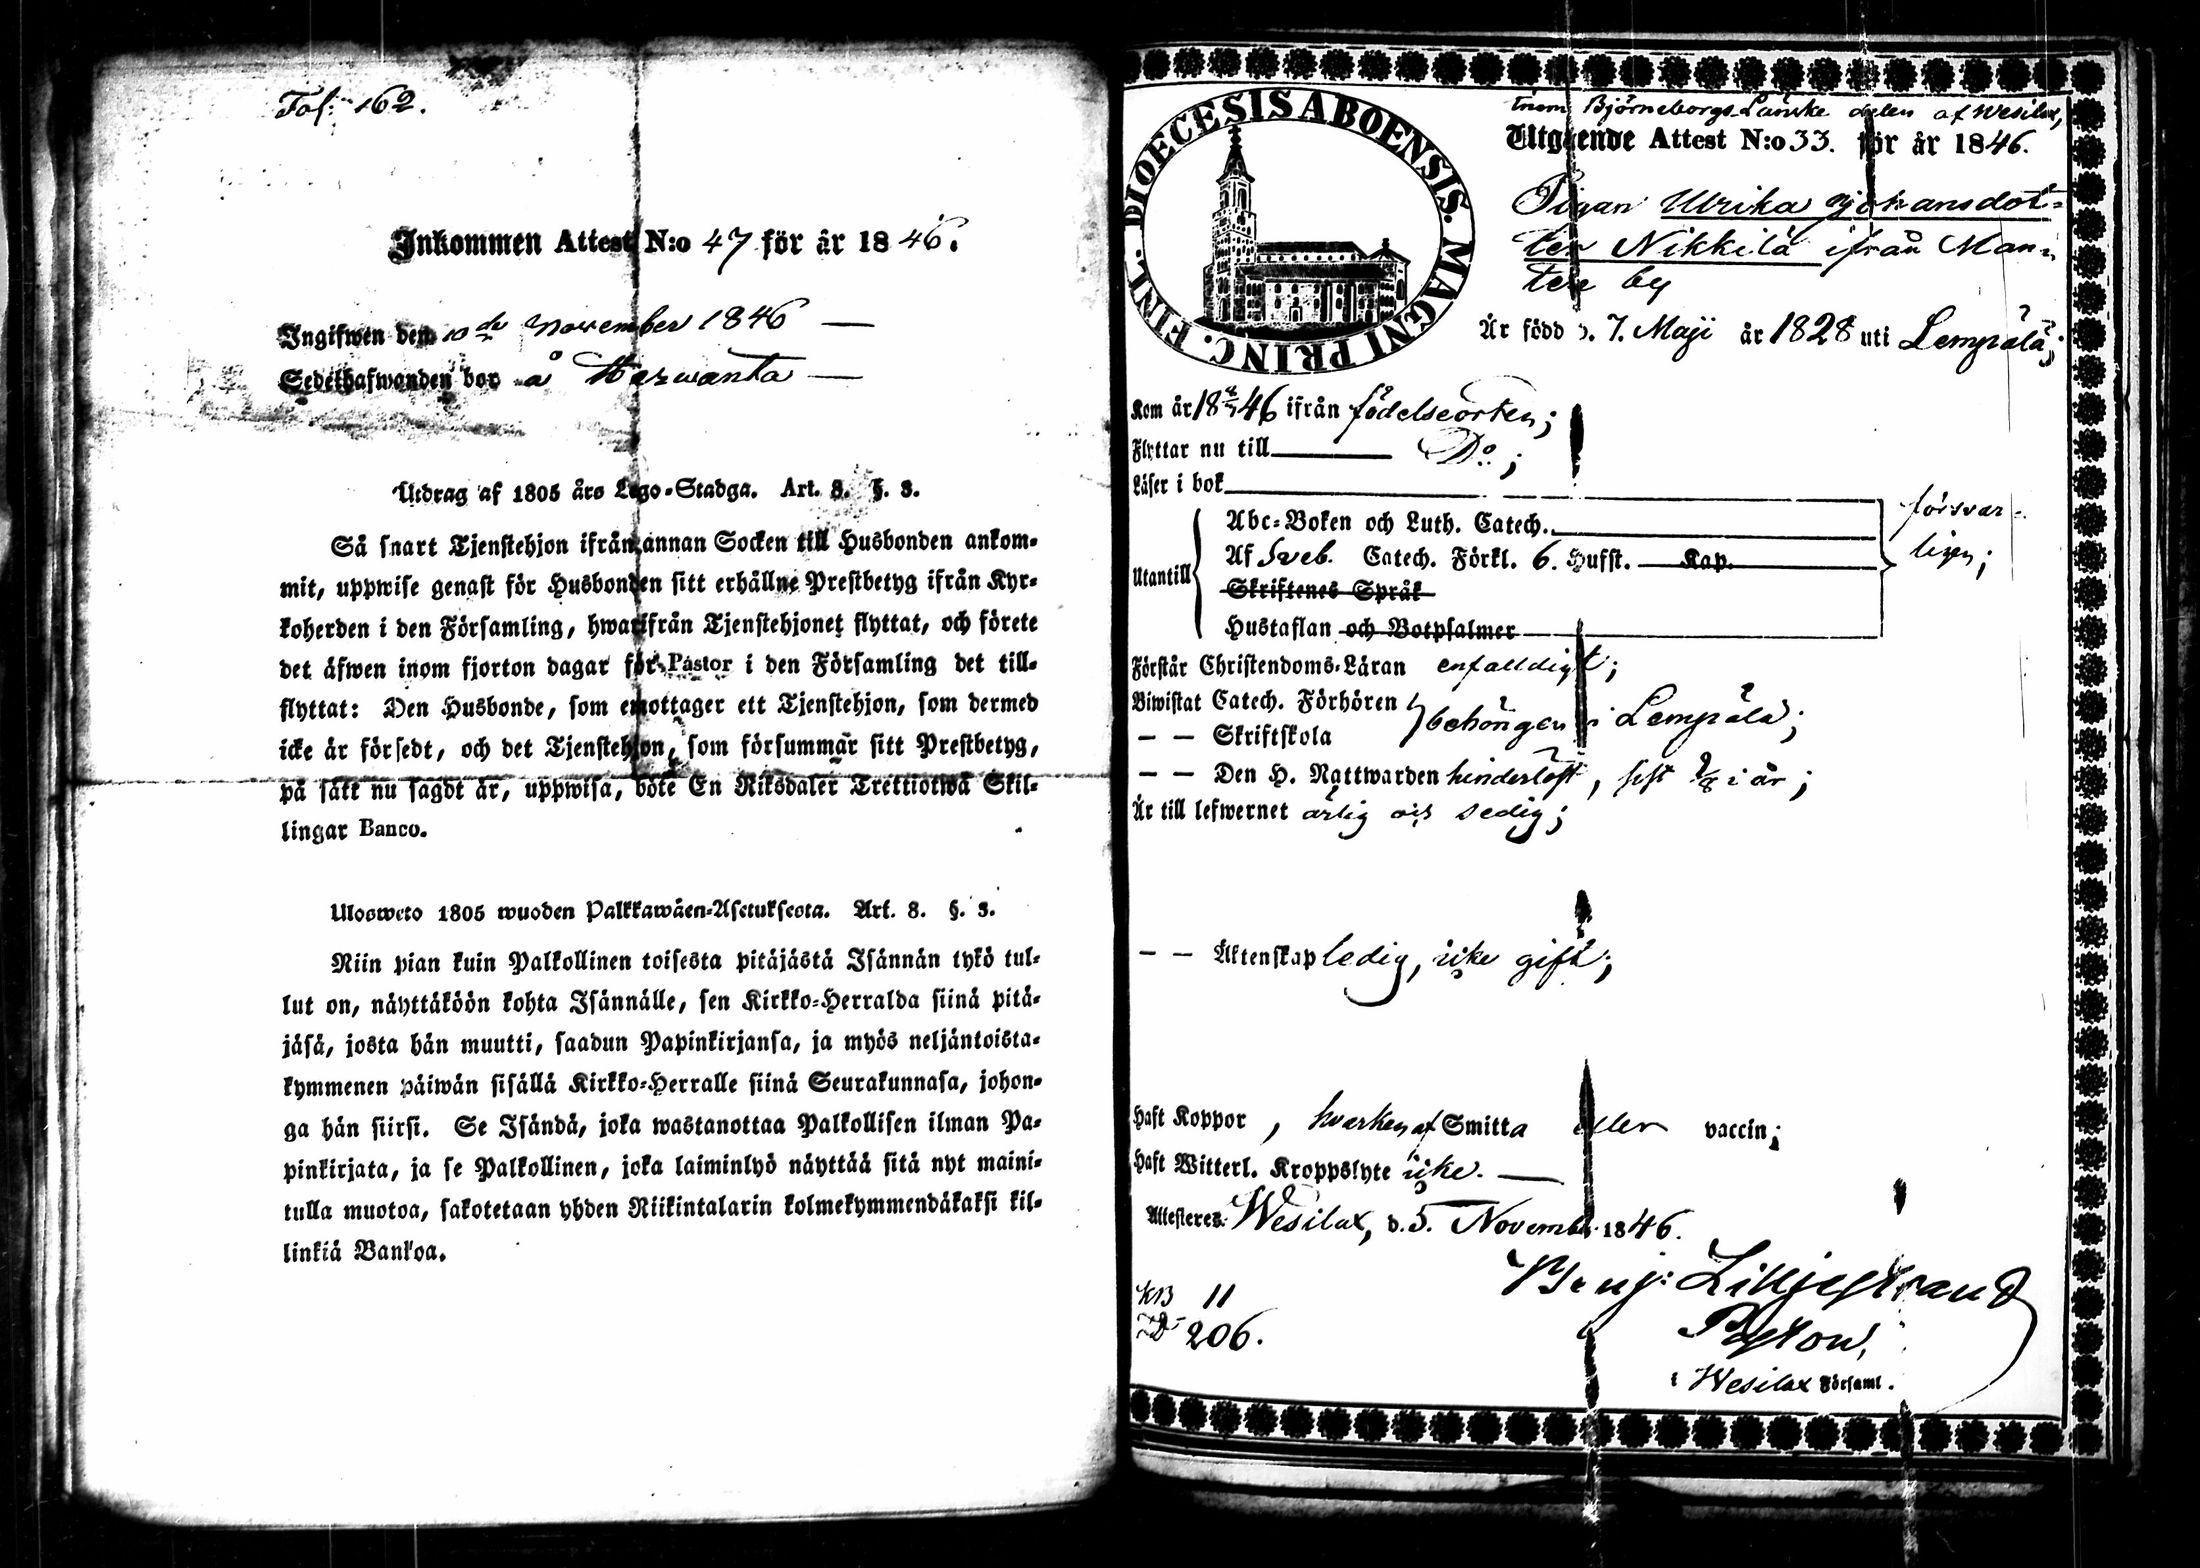 Fol: 162.
Inkommen Attest N:o 47 för år 1846.
Ingifwen den 10de November 1846 —
Sedelhafwanden bor å Herwanta —
Utdrag af 1805 års Lego-Stadga. Art. 8. §. 3.
Så snart Tjenstehjon ifrån annan Socken till Husbonden ankom-
mit, uppwise genast för Husbonden sitt erhållne Prestbetyg ifrån Kyr-
koherden i den Församling, hwarifrån Tjenstehjonet flyttat, och förete
det äfwen inom fjorton dagar för Pastor i den Församling det till-
flyttat: Den Husbonde, som emottager ett Tjenstehjon, som dermed
icke är försedt, och det Tjenstehjon, som försummar sitt Prestbetyg,
på sätt nu sagdt är, uppwisa, böte En Riksdaler Trettiotwå Skil-
lingar Banco.
Ulosweto 1805 wuoden Palkkawäen-Asetuksesta. Art. 8. §. 3.
Niin pian kuin Palkollinen toisesta pitäjästä Isännän tykö tul-
lut on, näyttäköön kohta Isännälle, sen Kirkko-Herralda siinä pitä-
jäsä, josta hän muutti, saadun Papinkirjansa, ja myös neljäntoista-
kymmenen päiwän sisällä Kirkko-Herralle siinä Seurakunnasa, johon-
ga hän siirsi. Se Isändä, joka wastanottaa Palkollisen ilman Pa-
pinkirjata, ja se Palkollinen, joka laiminlyö näyttää sitä nyt maini-
tulla muotoa, sakotetaan yhden Riikintalarin kolmekymmendäkaksi kil-
linkiä Bankoa.
DIOECESIS ABOENSIS. MAGNI PRINC. FINL.
inom Björneborgs Länske delen af Wesilax,
Utgående Attest N:o 33. för år 1846.
Pigan Ulrika Johansdot-
ter Nikkilä ifrån Man-
tere by
Är född d. 7. Maji år 1828 uti Lempälä;
Kom år 1846 ifrån födelseorten;
Flyttar nu till D:o;
Läser i bok
försvar-
ligen;
Utantill
Abc-Boken och Luth. Catech.
Af Sveb. Catech. Förkl. 6. Hufst. Kap.
Skriftenes Språk
Hustaflan och Botpsalmer
Förstår Christendoms-Läran enfaldigt;
Biwistat Catech. Förhören
— — Skriftskola
behörigen i Lempälä;
— — Den H. Nattwarden hinderlöst, sist i år;
Är till lefwernet ärlig och sedig;
— — Äktenskap ledig, icke gift;
Haft Koppor, hvarken af Smitta eller vaccin;
Haft Witterl. Kroppslyte icke. —
Attesteres. Wesilax, d. 5. November 1846.
Benj: Lilljestrand
Pastor,
i Wesilax Församl.
KB 11
206.